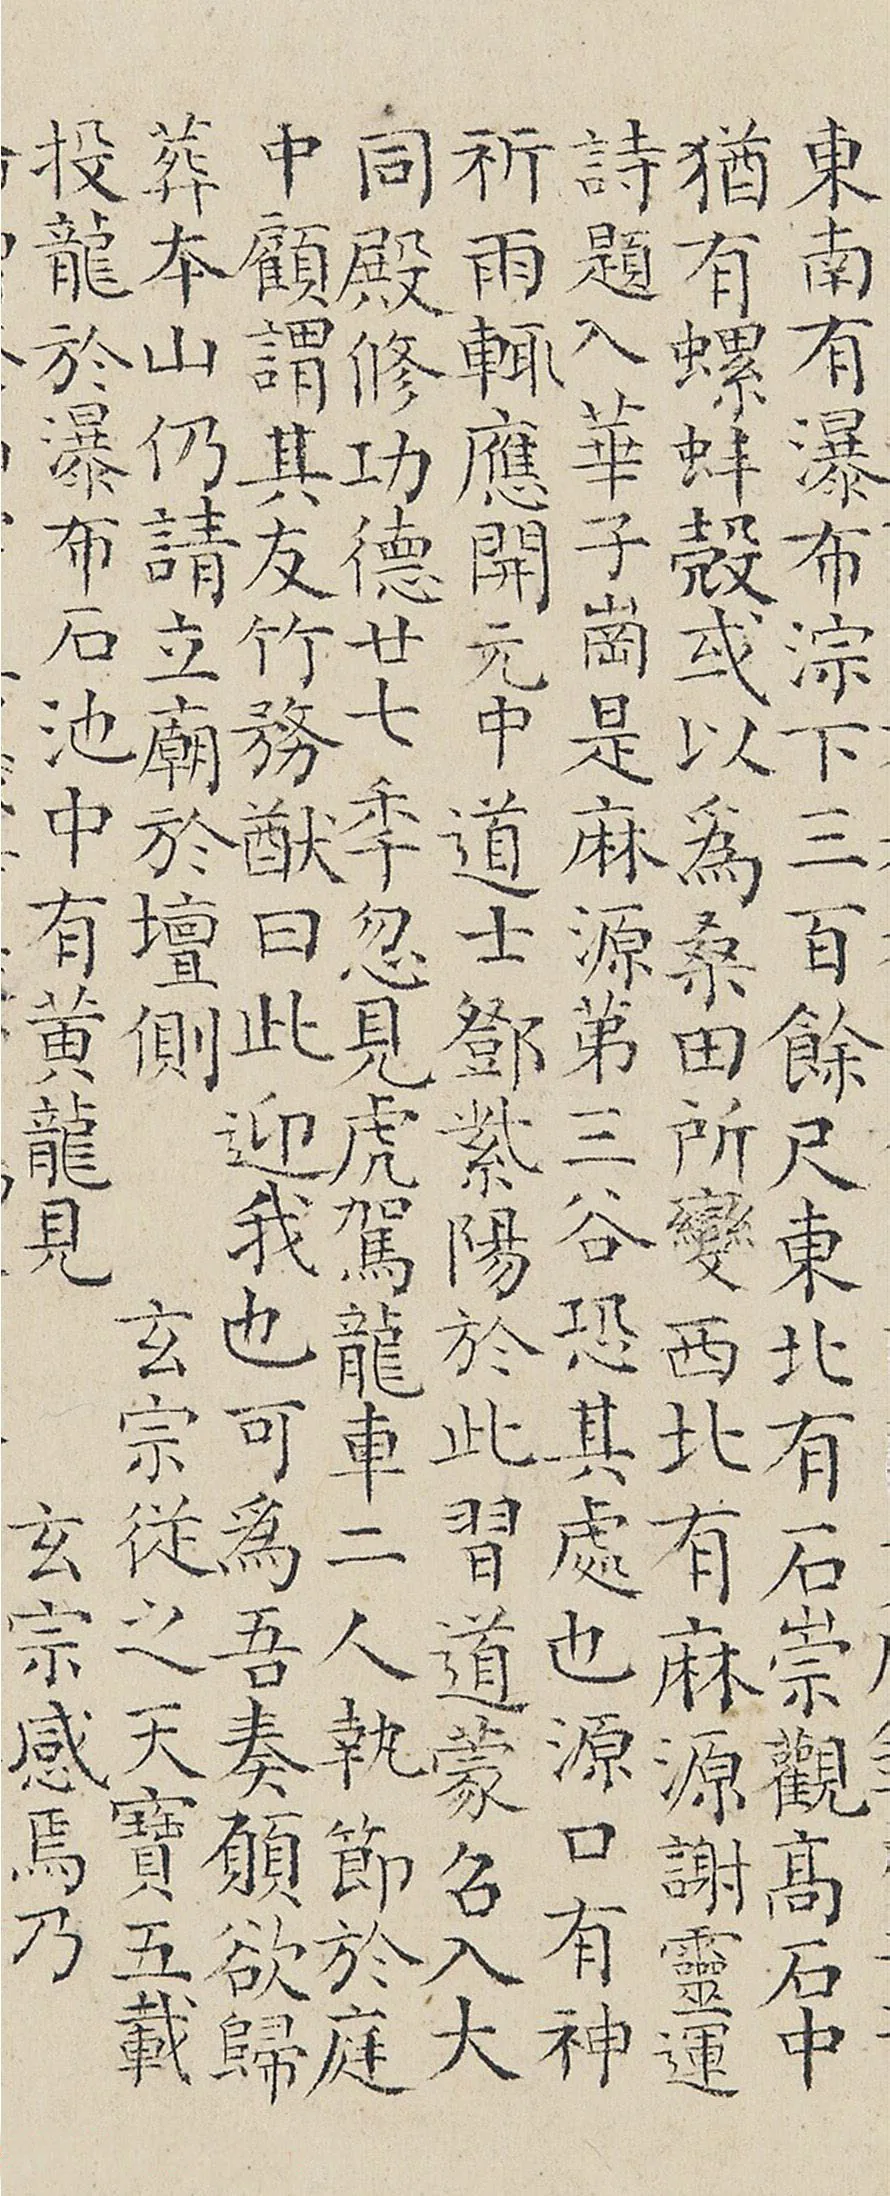 東南有瀑布淙下三百餘尺東北有石崇觀高石中
猶有螺蚌殼或以為桑田所變西北有麻源謝靈運
詩題入華子崗是麻源第三谷恐其處也源口有神
祈雨輒應開元中道士鄧紫陽於此習道蒙召入大
同殿修功德廿七季忽見虎駕龍車二人執節於庭
中顧謂其友竹務猷曰此迎我也可為吾奏願欲歸
葬本山仍請立廟於壇側 玄宗從之天寶五載
投龍於瀑布石池中有黃龍見 玄宗感焉乃